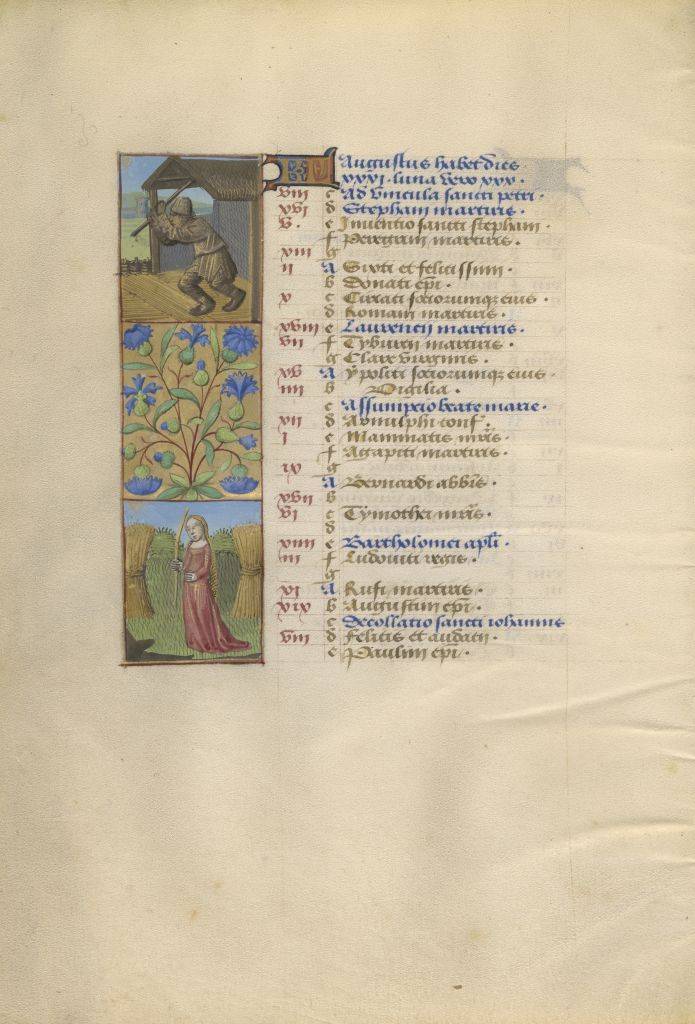 KL Augustus habet dies
xxxi. luna vero xxx.
viii c Ad vincula sancti petri.
xvi d Stephani martiris.
v. e Inventio sancti stephani.
f Peregrini martiris.
xiii g
ii A Sixti et felicissimi.
b Donati epi.
x c Ciriaci sociorumque eius.
d Romani martiris.
xviii e Laurencii martiris.
vii f Tyburcii martiris.
g Clare virginis.
xv A Ypoliti sociorumque eius.
iiii b Vigilia.
c Assumptio beate marie.
xii d Arnulphi conf.
i e Mammatis mris.
f Agapiti martiris.
ix g
A Bernardi abbis.
xvii b
vi c Tymothei mris.
d
xiiii e Bartholomei apli.
iii f Ludovici regis.
g
xi A Rufi martiris.
xix b Augustini epi.
c Decollatio sancti iohannis
viii d Felicis et audacti.
e Paulini epi.